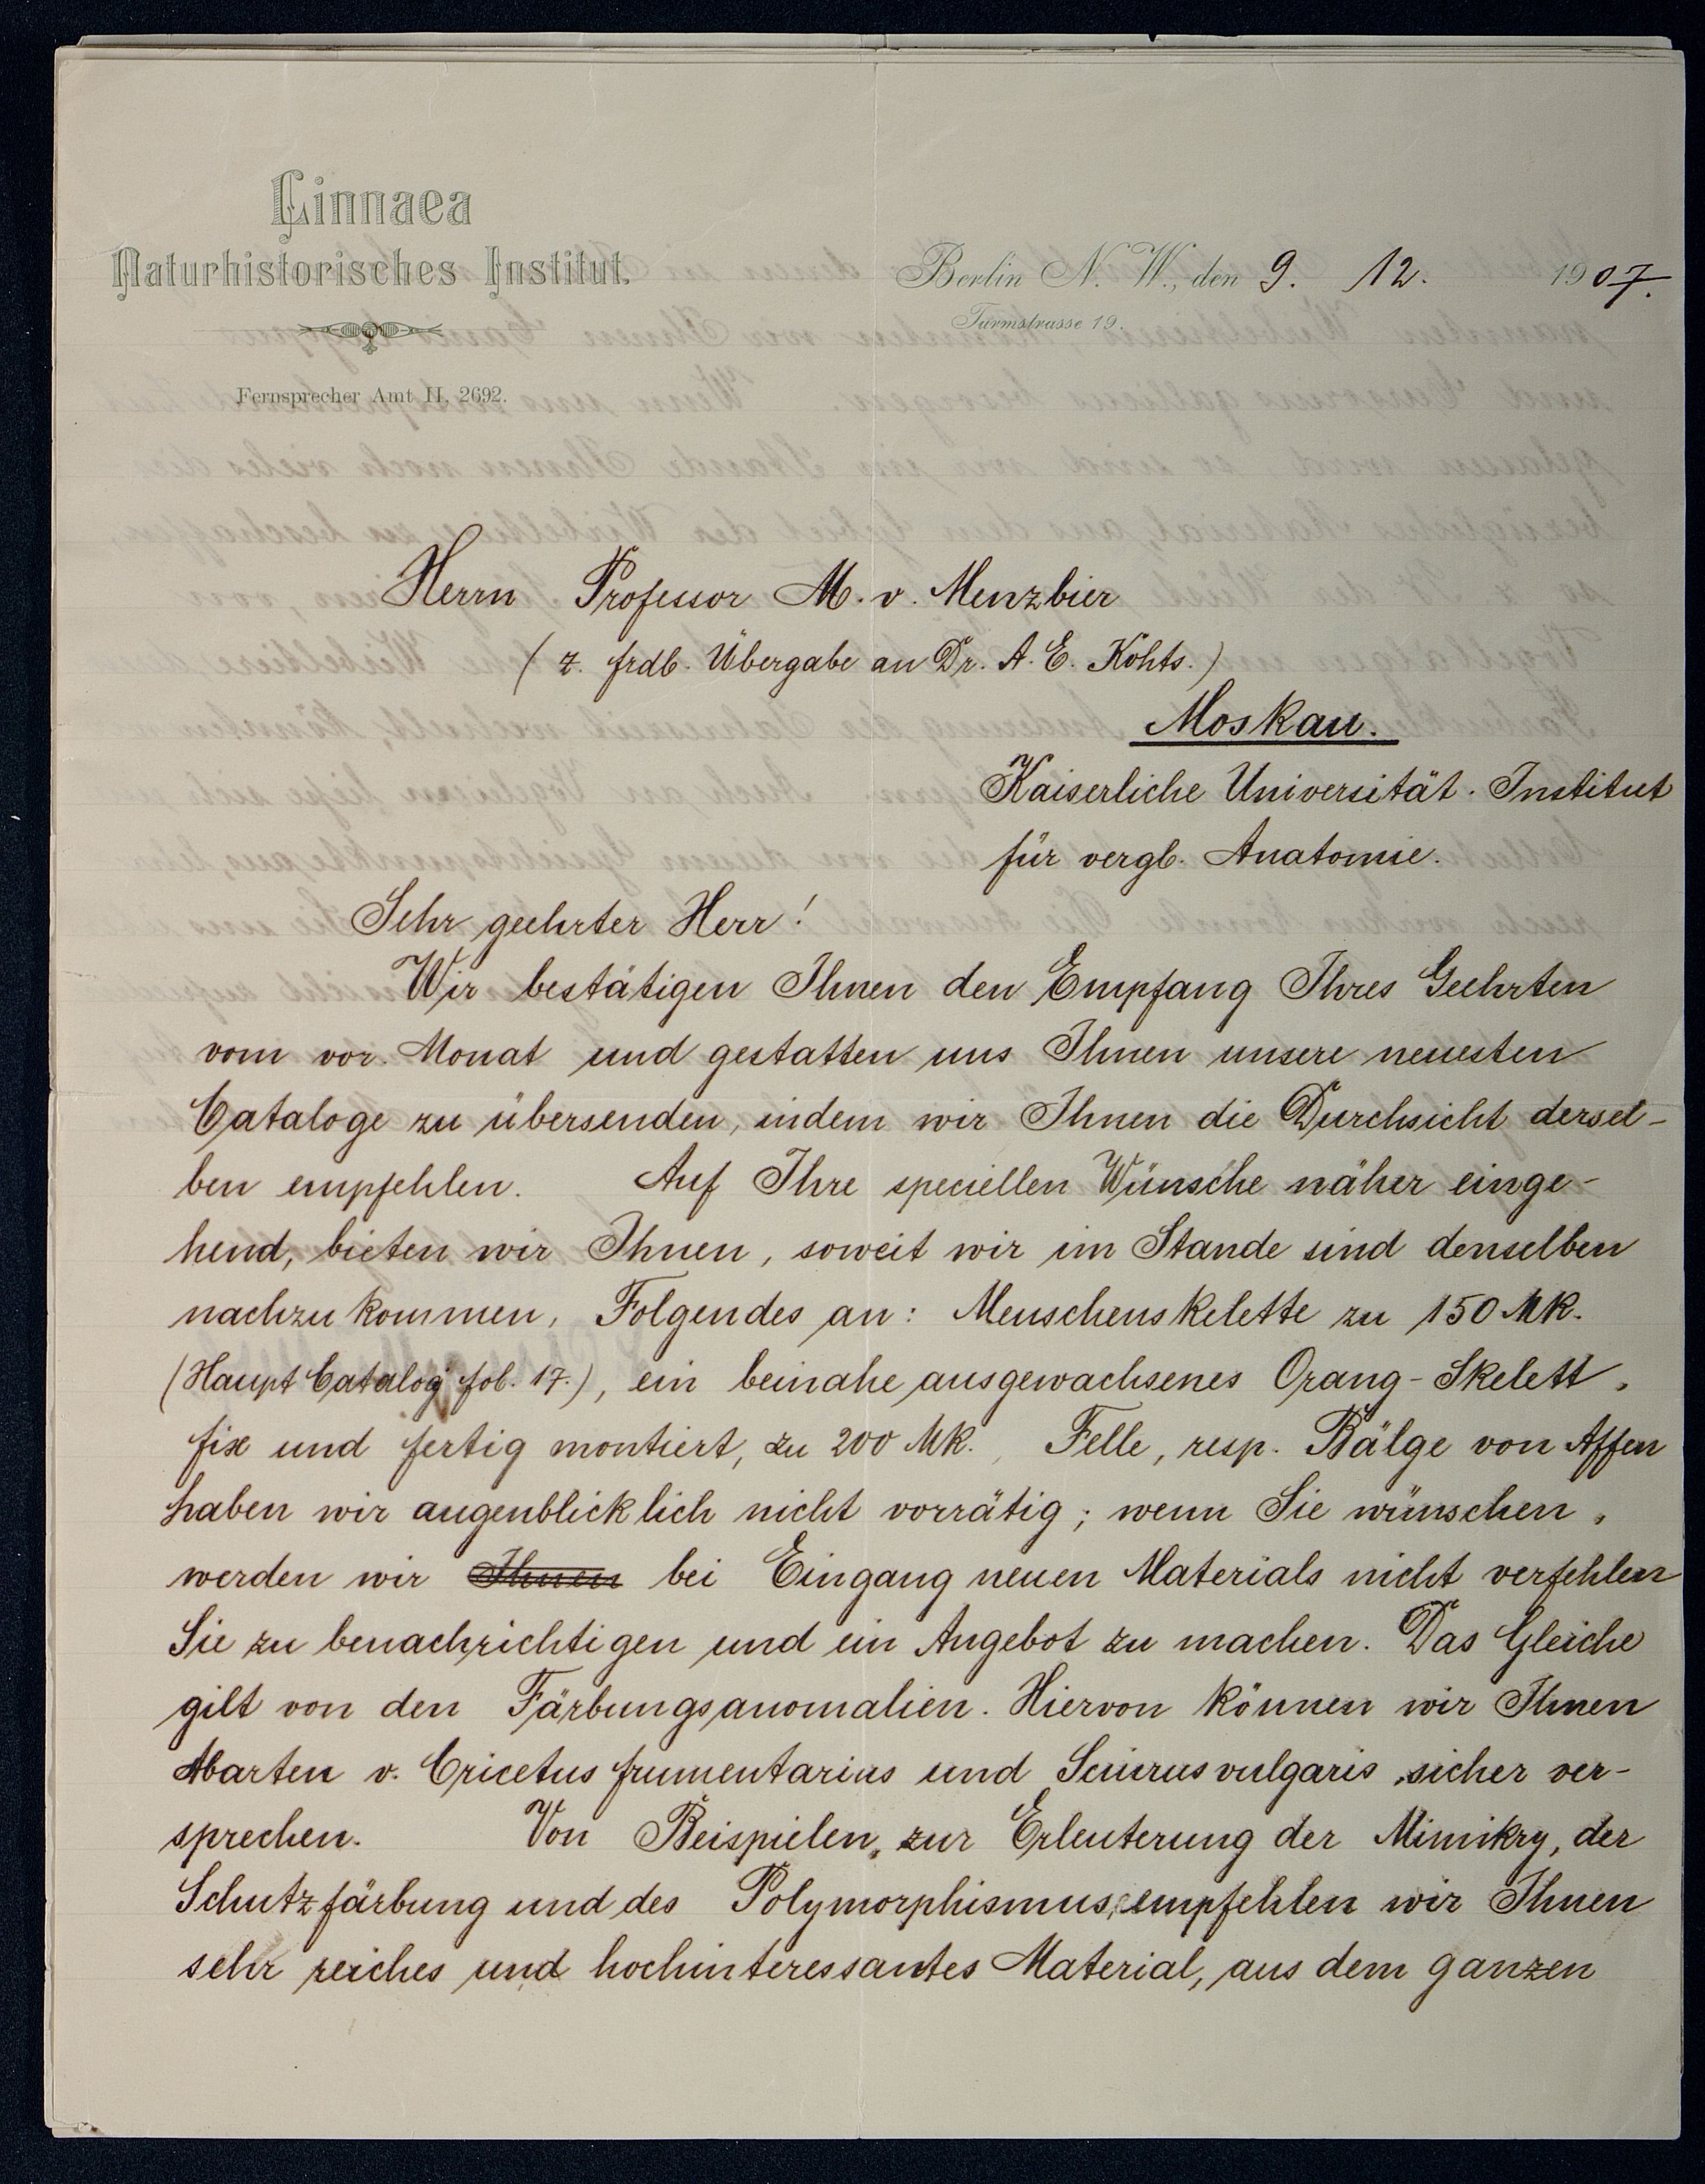 Linnaea
Naturhistorisches Institut.
Fernsprecher Amt II, 2692.
Berlin N. W., den 9. 12. 1907.
Turmstrasse 19.
Herrn Professor M. v. Menzbier
(z. frdl. Übergabe an Dr. A. E. Kohts.)
Moskau.
Kaiserliche Universität. Institut
für vergl. Anatomie.
Sehr geehrter Herr!
Wir bestätigen Ihnen den Empfang Ihres Geehrten
vom vor. Monat und gestatten uns Ihnen unsere neuesten
Cataloge zu übersenden, indem wir Ihnen die Durchsicht dersel-
ben empfehlen. Auf Ihre speciellen Wünsche näher einge-
hend, bieten wir Ihnen, soweit wir im Stande sind denselben
nachzukommen, Folgendes an: Menschenskelette zu 150 Mk.
(Haupt Catalog fol. 17.), ein beinahe ausgewachsenes Orang-Skelett,
fix und fertig montiert, zu 200 Mk., Felle, resp. Bälge von Affen
haben wir augenblicklich nicht vorrätig; wenn Sie wünschen,
werden wir Ihnen bei Eingang neuen Materials nicht verfehlen
Sie zu benachrichtigen und ein Angebot zu machen. Das Gleiche
gilt von den Färbungsanomalien. Hiervon können wir Ihnen
Abarten v. Cricetus frumentarius und Sciurus vulgaris, sicher ver-
sprechen. Von Beispielen, zur Erleuterung der Mimikry, der
Schutzfärbung und des Polymorphismus, empfehlen wir Ihnen
sehr reiches und hochinteressantes Material, aus dem ganzen